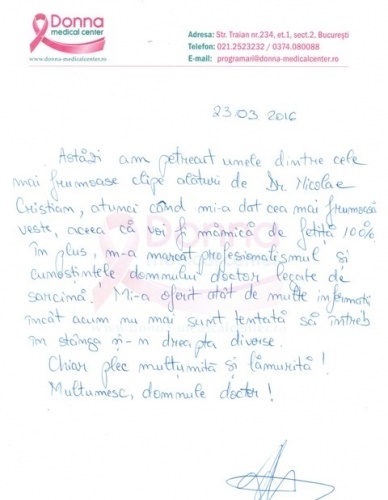 Donna
medical center
www.donna-medicalcenter.ro
Adresa: Str. Traian nr.234, et.1, sect.2, București
Telefon: 021.2523232 / 0374.080088
E-mail: programari@donna-medicalcenter.ro
23.03 2016
Astăzi am petrecut unele dintre cele
mai frumoase clipe alături de Dr. Nicolae
Cristian, atunci când mi-a dat cea mai frumoasă
veste, aceea că voi fi mămică de fetiță 100%.
În plus, m-a marcat profesionatismul și
cunoștințele domnului doctor legate de
sarcină! Mi-a oferit atât de multe informații
încât acum nu mai sunt tentată să întreb
în stânga și-n dreapta diverse.
Chiar plec mulțumită și lămurită!
Multumesc, domnule doctor!